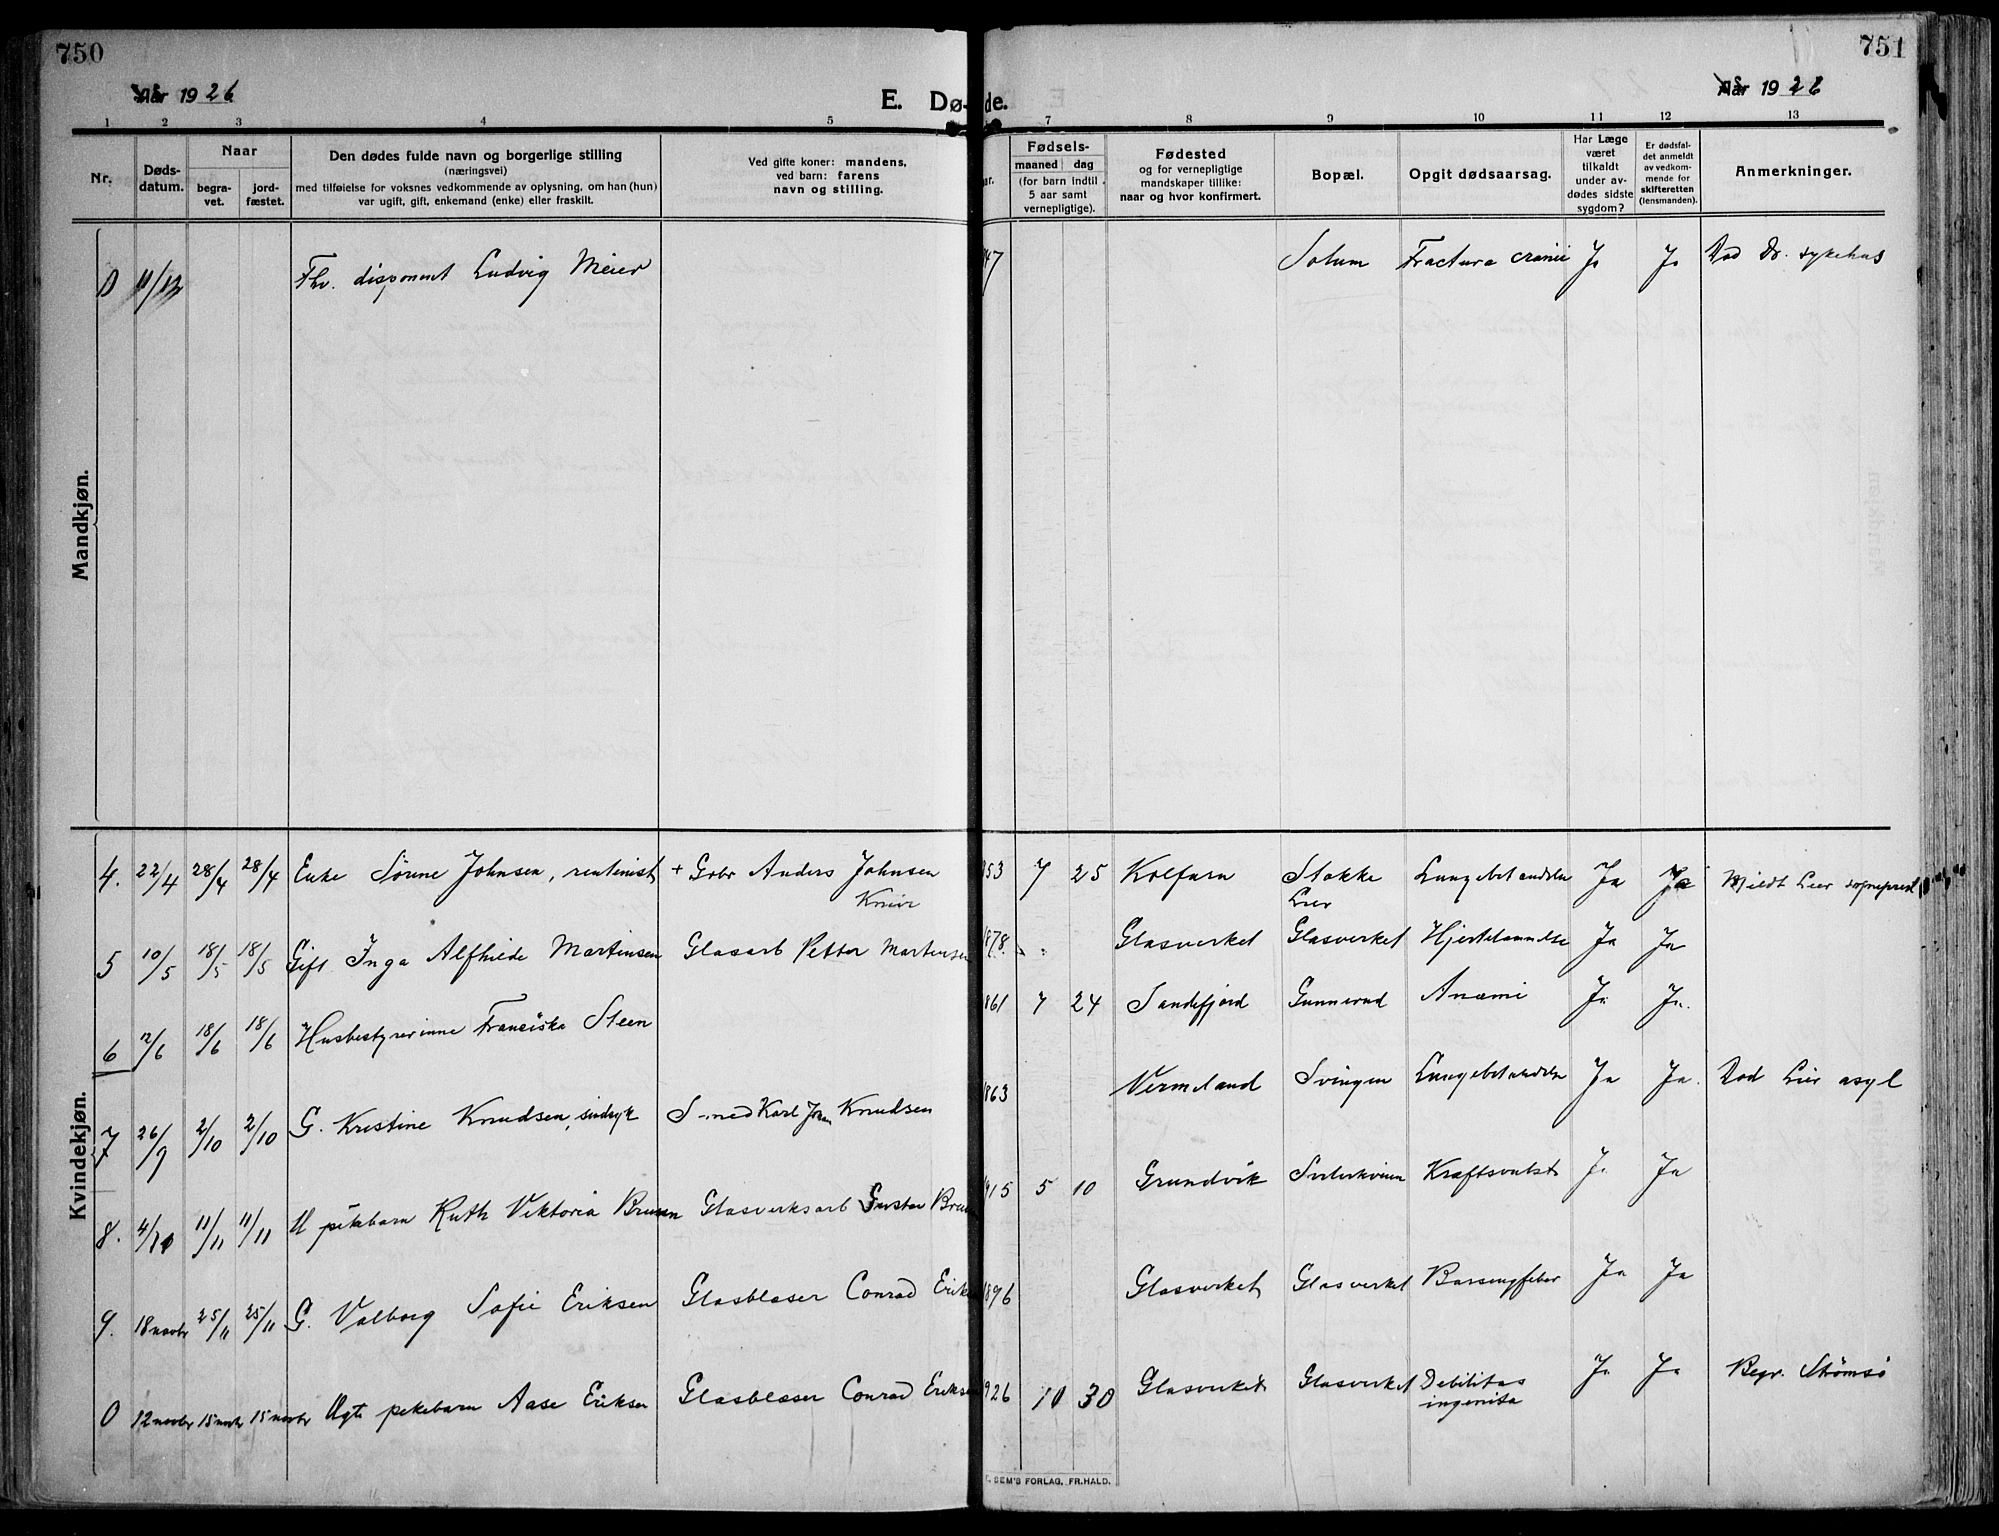 750
Aar 1926
E. Dø-
de.
Aar 1926
751
1 2 3 4 5 7 8 9 10 11 12 13
Nr.
Døds-
datum.
Naar
begra-
vet.
jord-
fæstet.
Den dødes fulde navn og borgerlige stilling
(næringsvei)
med tilføielse for voksnes vedkommende av oplysning, om han (hun)
var ugift, gift, enkemand (enke) eller fraskilt.
Ved gifte koner: mandens,
ved barn: farens
navn og stilling.
Fødsels-
maaned dag
(for barn indtil
5 aar samt
vernepligtige).
Fødested
og for vernepligtige
mandskaper tillike:
naar og hvor konfirmert.
Bopæl.
Opgit dødsaarsag.
Har Læge
været
tilkaldt
under av-
dødes sidste
sygdom?
Er dødsfal-
det anmeldt
av vedkom-
mende for
skifteretten
(lensmanden).
Anmerkninger.
Mandkjøn.
0 11/12 Fhv. disponent Ludvig Meier 47 Solum Fractura cranii Ja Ja Død Dr. sykehus
Kvindekjøn.
4. 22/4 28/4 28/4 Enke Sørine Johnsen, rentenist + Gbr Anders Johnsen 853 7 25 Kolfarn Stokke
Lier Lungebetændelse Ja Ja Meldt Lier sogneprest
5 10/5 18/5 18/5 Gift Inga Alfhilde Martinsen Glasarb Petter Martinsen 1878. Glasverket Glasverket Ja Ja
6 12/6 18/6 18/6 Husbestyrerinne Franciska Steen 861 7 24 Sandefjord Gunnerud Anæmi Ja Ja.
7 26/9 2/10 2/10 G. Kristine Knudsen, sindsyk Smed Karl Johan Knudsen 863 Vermeland Svingen Lungebetændelse Ja Ja. Død Lier asyl
8. 4/11 11/11 11/11 U pikebarn Ruth Viktoria Bruun Glasverksarb Gustav Bruun 915 5 10 Grundvik Kræftsvulst Ja Ja
9. 18 novbr 25/11 25/11 G. Valborg Sofie Eriksen Glasblaser Conrad Eriksen 1896 Glasverket Glasverket Barselfeber Ja Ja
0 12 novbr 15 novbr 15 novbr Ægte pikebarn Aase Eriksen Glasblaser Conrad Eriksen 926 10 30 Glasverket Glasverket Debilitas
ingenita Ja Ja Begr. Strømsø
SEM'S FORLAG, FR.HALD.